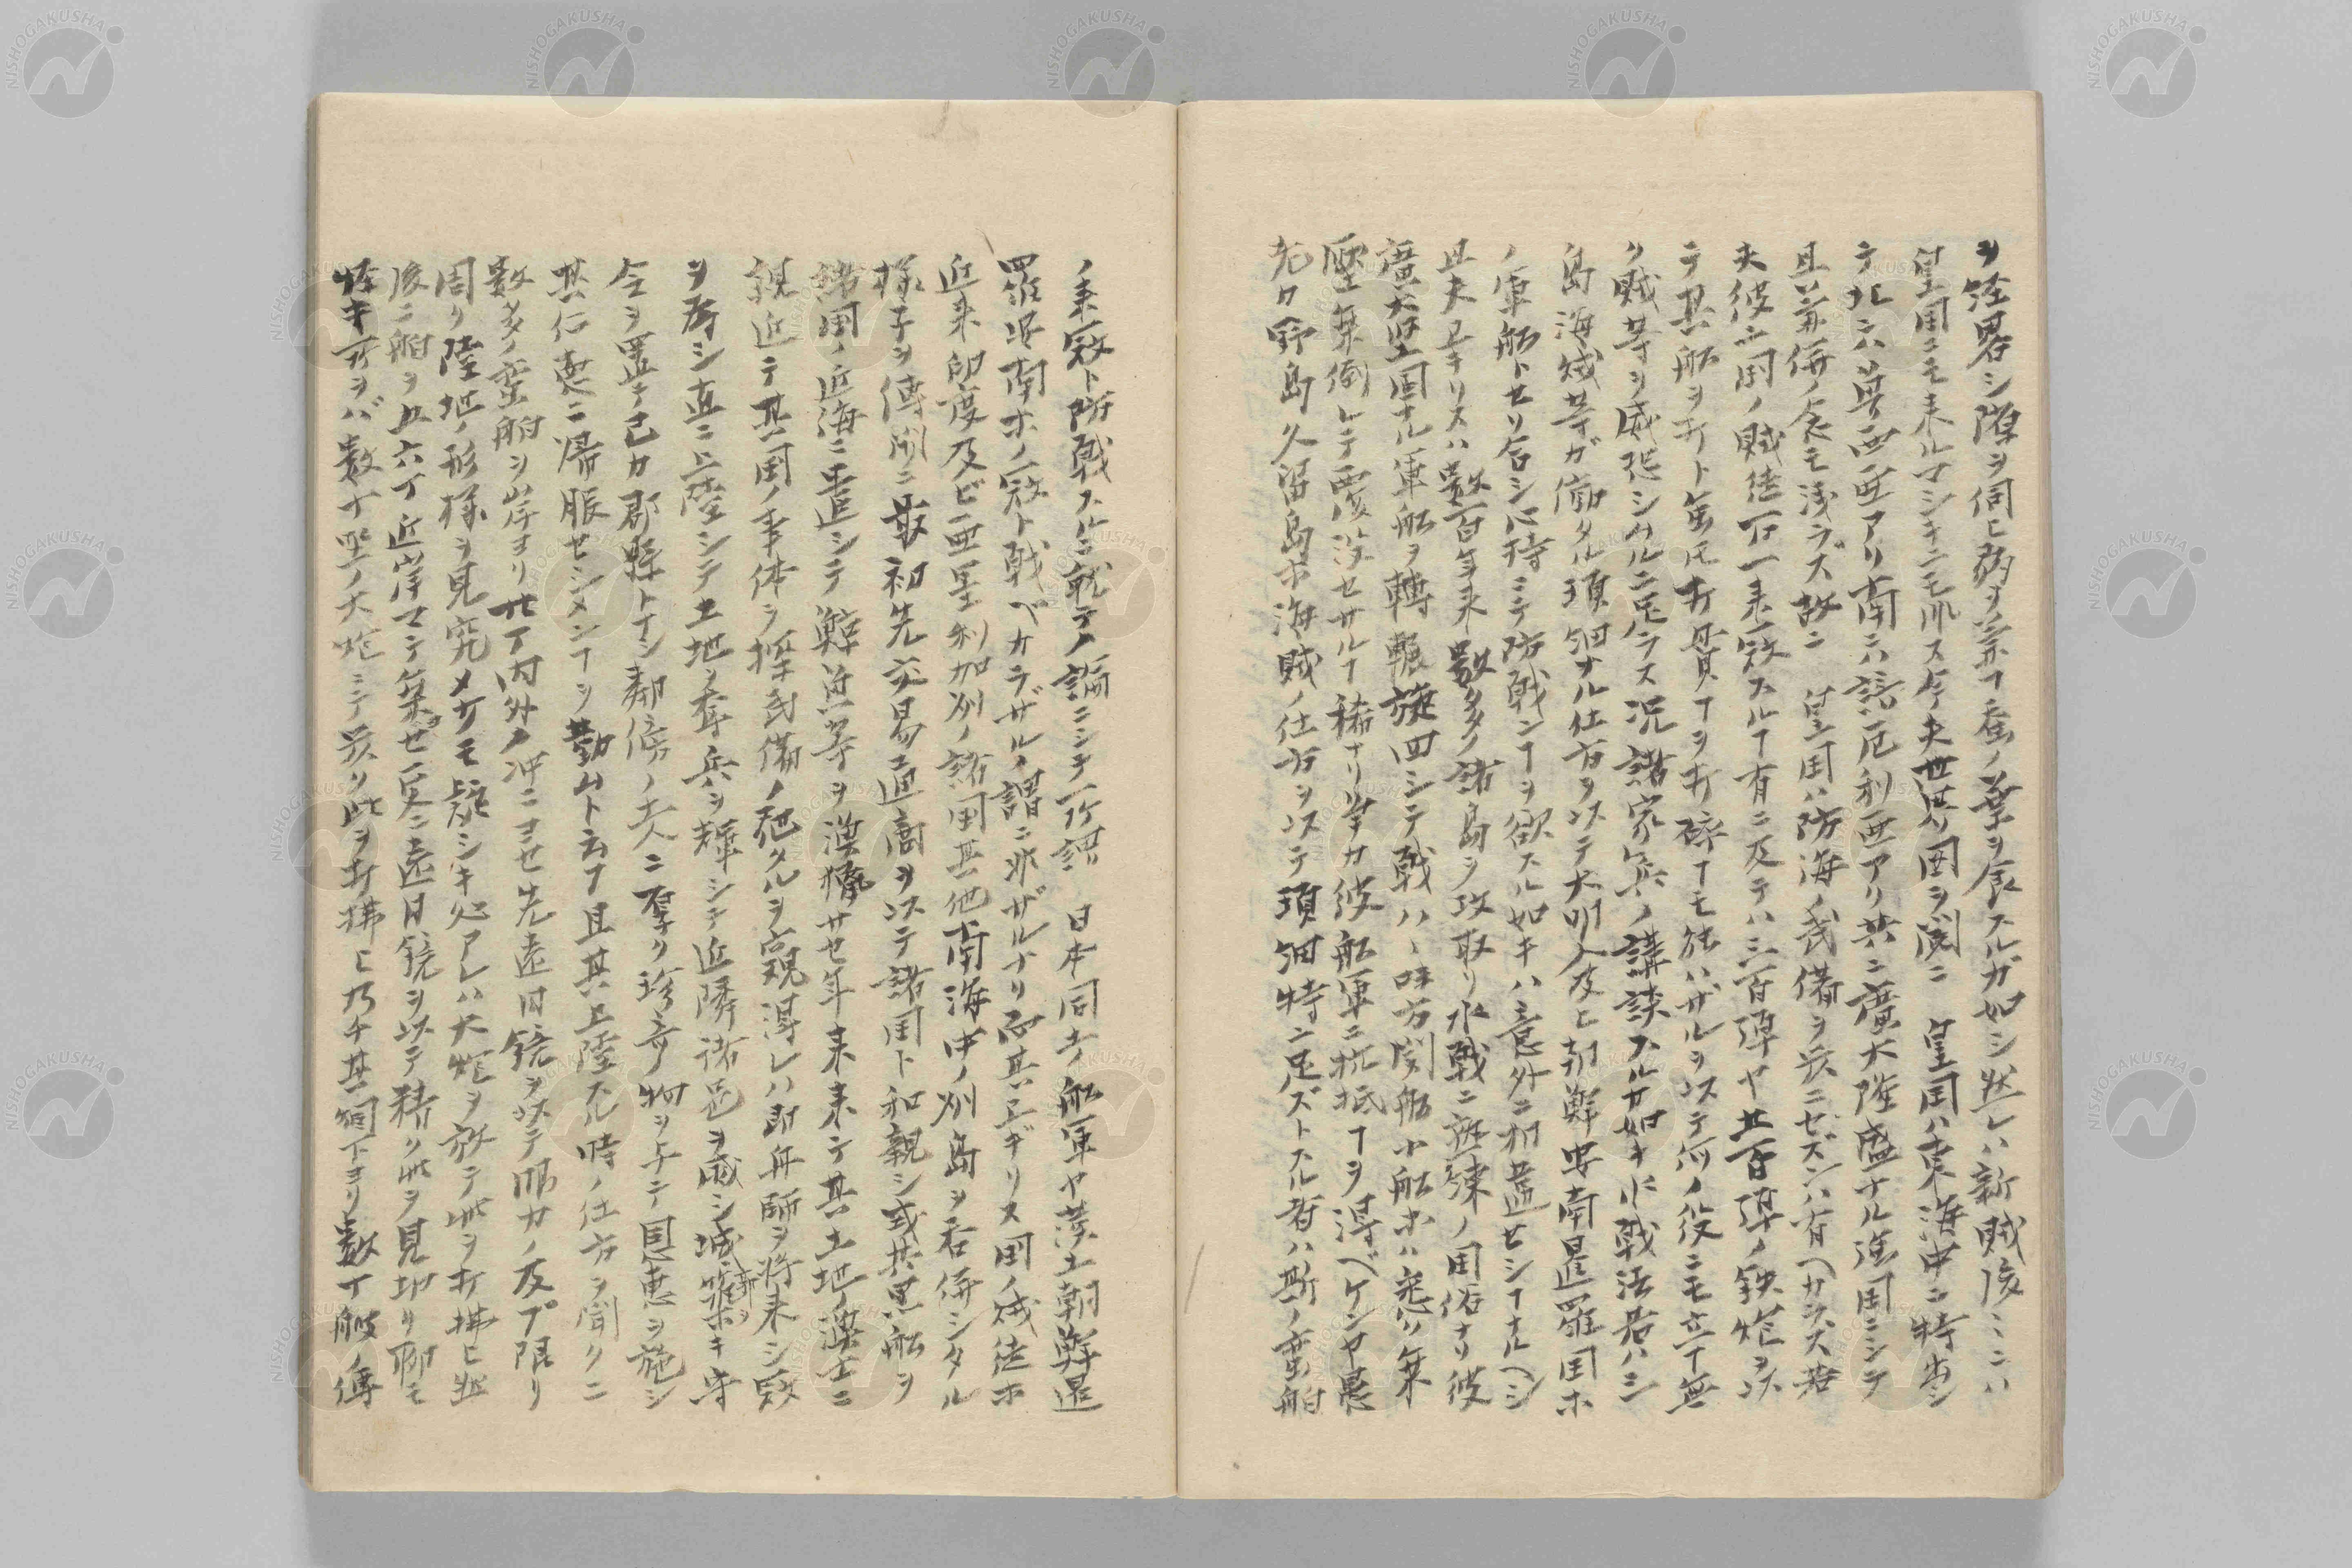 ヲ経畧シ隙ヲ伺ヒ病ヲ乗フ蚕ノ葉ヲ食スルガ如シ然レハ新賊
皇国ニモ来ルマシキニモ非ス今夫世界ノ図ヲ閲ニ 皇国ハ東海中ニ特出シ
テ北ニハ 西亜アリ南ニハ諳厄利亜アリ共ニ廣大隆盛ナル強国ニシテ
且兼併ノ念モ浅ラズ故ニ 皇国ハ防海ノ武備ヲ厳ニセズンハ有ヘカラス若
夫彼ニ国ノ賊徒万一来寇スルヿ有ニ及テハ三百弾ヤ五百弾ノ鉄炮ヲ以
テ其舩ヲ打ト雖氏打貫ヿヲ打砕ヿモ能ハザルヲ以テ何ノ役ニモ立ヿ無
リ賊等ヲ威怒シムルニ足ラス况諸家兵ノ講談スルカ如キ水戦法若ハシ
島海賊等ガ働タル瑣細ナル仕方ヲ以テ大明人及ヒ朝鮮安南暹羅国ホ
ノ軍舩トセリ合シ心持ニテ防戦ンヿヲ欲スル如キハ意外ニ相違セシヿナルヘシ
且夫ヱキリスハ数百年来数多ノ諸島ヲ攻取リ水戦ニ熟練ノ国俗ナリ彼
廣大堅固ナル軍舩ヲ轉輾旋回シテ戦ハハ味方関舩小舩ホハ悉ク乗
壓乗倒レテ覆没セサルヿ稀ナリ誰カ彼舩軍ニ抗抵ヿヲ得ベケンヤ愚
老カ野島久留島ホ海賊ノ仕方ヲ以テ瑣細特ニ足ズトスル者ハ斯ノ蛮舶
ノ来寇ト防戦スルニ就テノ論ニシテ所謂 日本同士ノ舩軍ヤ漢土朝鮮暹
羅安南ホノ寇ト戦ベカラザルノ謂ニ非ザルナリ西其ヱギリス国ノ賊徒ホ
近来印度及ビ亜墨利加州ノ諸国其他南海中ノ州島ヲ呑併シタル
様子ヲ傳聞ニ最初先交易通商ヲ以テ諸国ト和親シ或其黒舩ヲ
諸国ノ近海ニ乗進シテ鯨漁等ヲ漁猟サセ年来来テ其土地ノ漁士ニ
親近テ其国ノ事体ヲ探武備ノ怠タルヲ窺得レハ即舟師ヲ将来シ寇
ヲ為シ直ニ上陸シテ土地ヲ奪兵ヲ輝シテ近隣諸邑ヲ威シ城ヲ築キ守
令ヲ置テ己カ郡縣トナシ鄰傍ノ夫人ニ厚ク珍奇ノ物ヲ与テ恩惠ヲ施シ
其仁恵ニ帰服セシメンヿヲ勤ムト云フ且其上陸スル時ノ仕方ヲ聞クニ
数多ノ蛮舶ヲ岸ヨリ廿丁内外ノ冲ニヨセ先遠目鏡ヲ以テ眼力ノ及プ限リ
周リ陸地ノ形様ヲ見究メ有モ疑シキ処アレハ大炮ヲ放テ此ヲ打拂ヒ然
後ニ舶ヲ五六丁近岸マテ乗ゼ爰ニ遠目鏡ヲ以テ精ク此ヲ見切リ聊モ
怪キ所ヲバ数十埊ノ大炮ニテ厳ク此ヲ打拂ヒ乃チ其炮下ヨリ数丁艘ノ傳